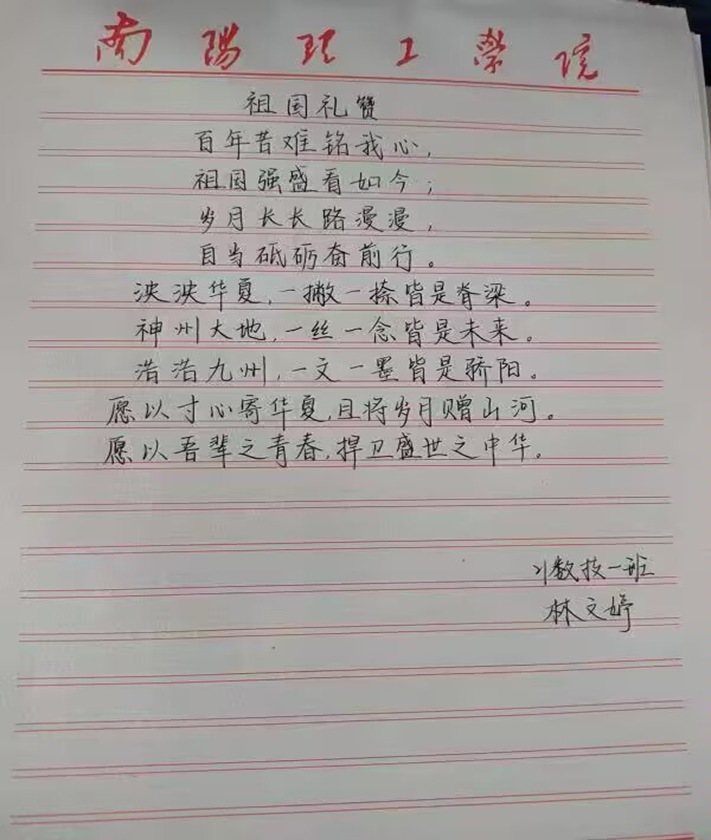 南阳理工学院
祖国礼赞
百年苦难铭我心，
祖国强盛看如今；
岁月长长路漫漫，
自当砥砺奋前行。
泱泱华夏，一撇一捺皆是脊梁。
神州大地，一丝一念皆是未来。
浩浩九州，一文一墨皆是骄阳。
愿以寸心寄华夏，且将岁月赠山河。
愿以吾辈之青春，捍卫盛世之中华。
21数技一班
林文婷